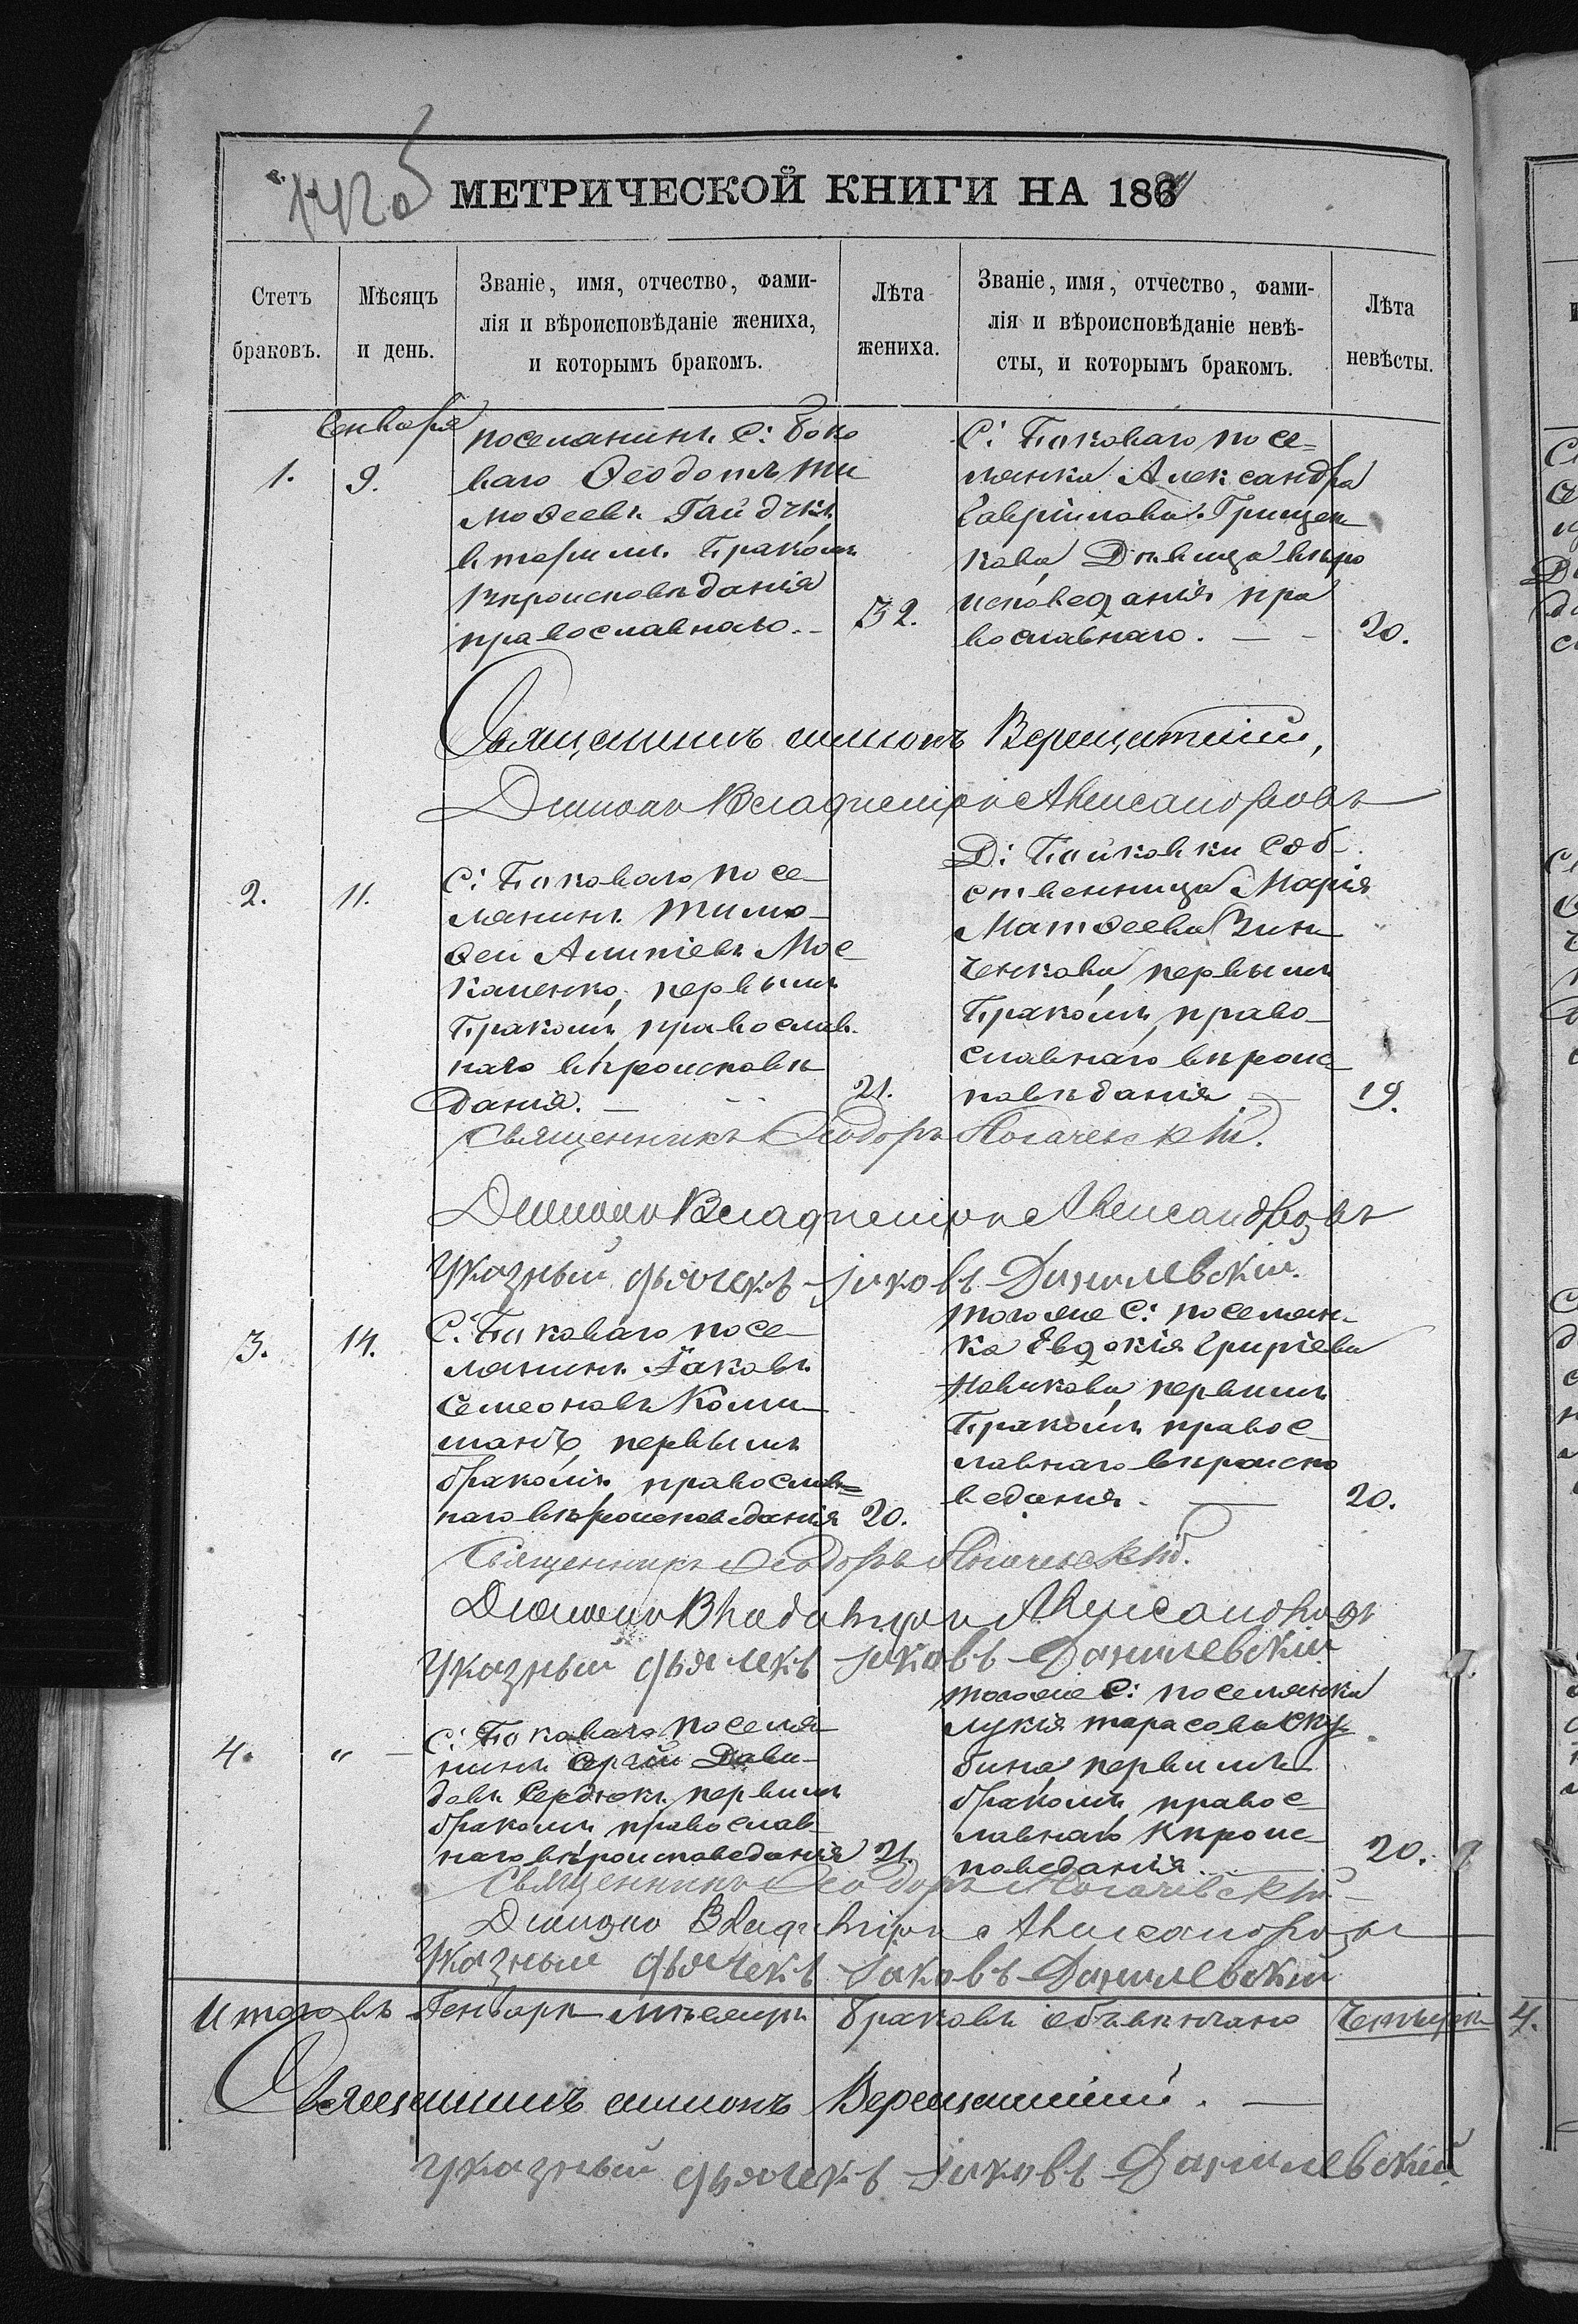 142 об
МЕТРИЧЕСКОЙ КНИГИ НА 186
Счетъ
браковъ.
Мѣсяцъ
и день.
Званіе, имя, отчество, фами-
лія и вѣроисповѣданіе жениха,
и которымъ бракомъ.
Лѣта
жениха.
Званіе, имя, отчество, фами-
лія и вѣроисповѣданіе невѣ-
сты, и которымъ бракомъ.
Лѣта
невѣсты.
Генваря
1.
9.
поселянинъ С: Боко
ваго Ѳеодотъ Ти
моѳеевъ Гайдукъ,
вторымъ бракомъ
вѣроисповѣданія
православнаго.
32.
С: Боковаго посе=
лянка Александра
Гавріилова Грищен
кова, Дѣвица вѣро
исповеданія пра
вославнаго.
20.
Священникъ Симонъ Верещатскій,
Діаконъ Владиміръ Александровъ
2.
11.
С: Боковаго посе-
лянинъ Тимо-
ѳей Алипіевъ Мос
каленко, первымъ
бракомъ, православ-
наго вѣроисповѣ
данія.
21.
Д: Бойковки соб-
ственница Марія
Матѳеева Зин
ченкова, первымъ
бракомъ, право-
славнаго вѣроис
повѣданія
19.
Священникъ Ѳеодоръ Логачевскій.
Діаконъ Владиміръ Александровъ
Указный дьячекъ Іаковъ Данилевскій.
3.
14.
С: Боковаго посе-
лянинъ Іаковъ
Семеоновъ
первымъ
бракомъ, православ=
наго вѣроисповеданія
20.
Тогоже С: поселян-
ка Евдокія Григріева
Новикова, первымъ
бракомъ правос-
лавнаго вѣроиспо
веданія.
20.
Священникъ Ѳеодоръ Логачевскій.
Діаконъ Владиміръ Александровъ
Указный дьячекъ Іаковъ Данилевскій
4.
"
С: Боковаго поселя-
нинъ Сергій Дави-
довъ Сердюкъ, первымъ
бракомъ, православ-
наго вѣроисповеданія
21.
Тогоже С: поселянка
Лукія Тарасова Ску-
бина, первымъ
бракомъ, правос-
лавнаго вѣроис-
поведанія.
20.
Священникъ Ѳеодоръ Логачевскій
Діаконъ Владиміръ Александровъ
Указный дьячекъ Іаковъ Данилевскій
Итого въ Генварѣ мѣсяцѣ браковъ обвѣнчано Четыре 4.
Священникъ Симонъ Верещатскій.
Указный дьячекъ Іаковъ Данилевскій